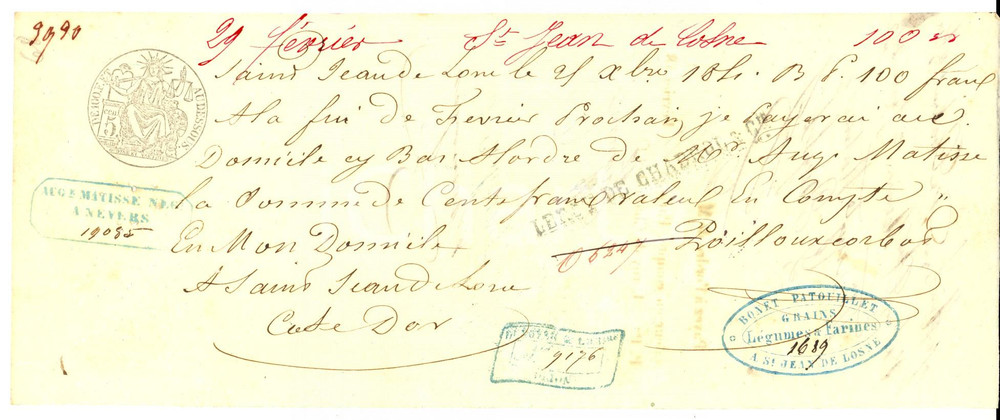 3990
29 février St Jean de Losne 100 "
Saint Jean de Lone le 25 Xbre 185 . B P. 100 franc
A la fin de Fevrier Prochain je payerai au
Domicile cy Bas A lordre de Mr Augte Matisse
La Somme de Cent franc valeur En Compte "
En Mon Domicile
A Saint Jean de Lone
Cote Dor
AUGTE MATISSE NEGT
A NEVERS
19085
6624
9176
DIJON
BONET PATOUILLET
GRAINS
Légumes & farines
1689
A ST JEAN DE LOSNE